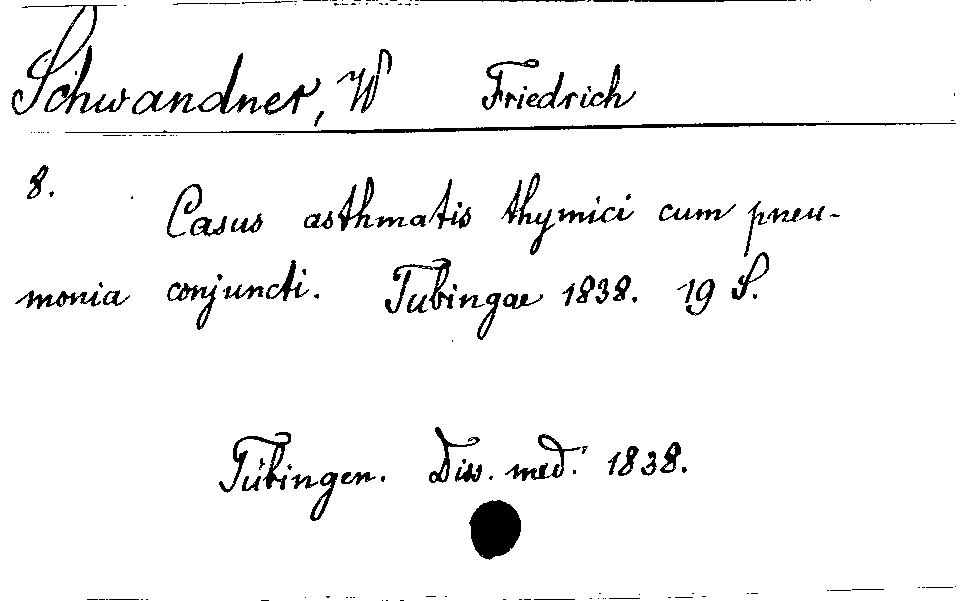 Schwandner, W Friedrich
8.
Casus asthmatis thymici cum pneu-
monia conjuncti. Tubingae 1838. 19 S.
Tübingen. Diss. med. 1838.